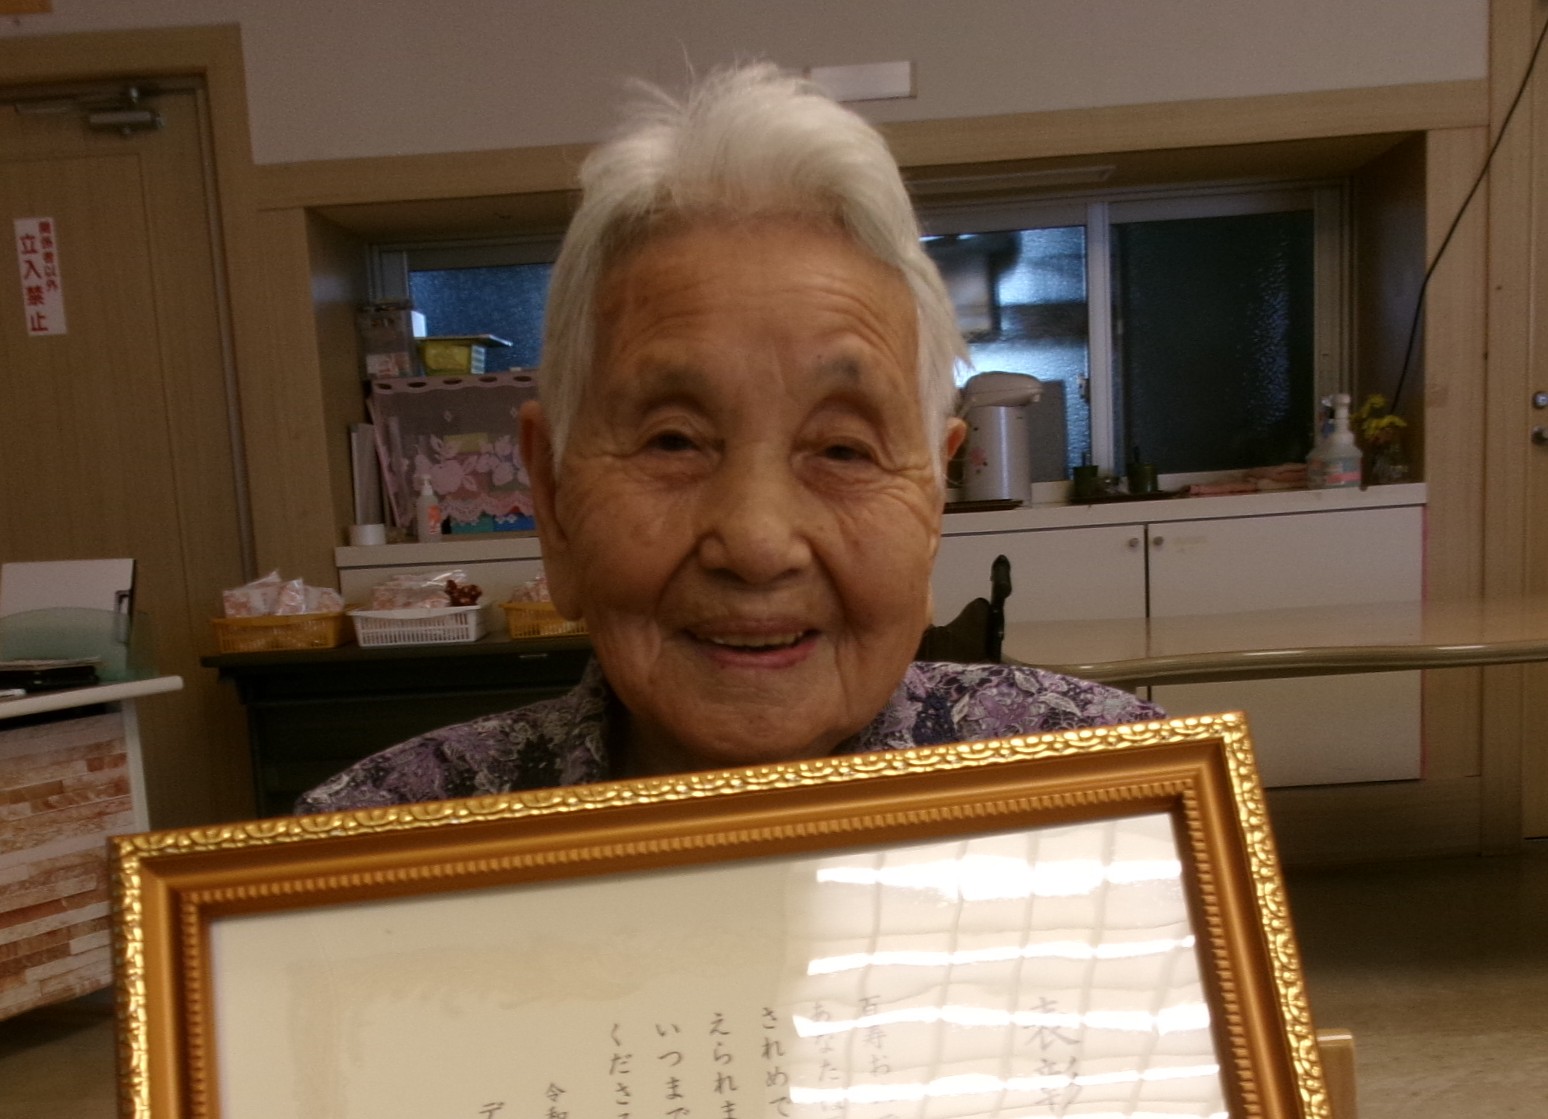 関係者以外
立入禁止
表彰
百寿お
あなたは
されめで
えられま
いつまで
くださ
令和
デ